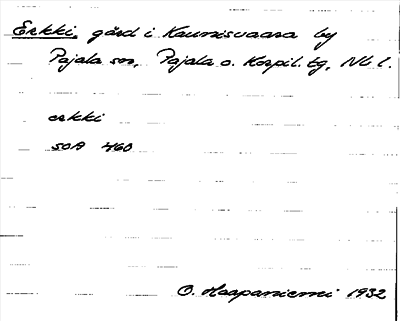 Erkki, gård i Kaunisvaara by
Pajala sn, Pajala o. Korpil. tg, Nb. l.
erkki
SOA 460
O. Haapaniemi 1932